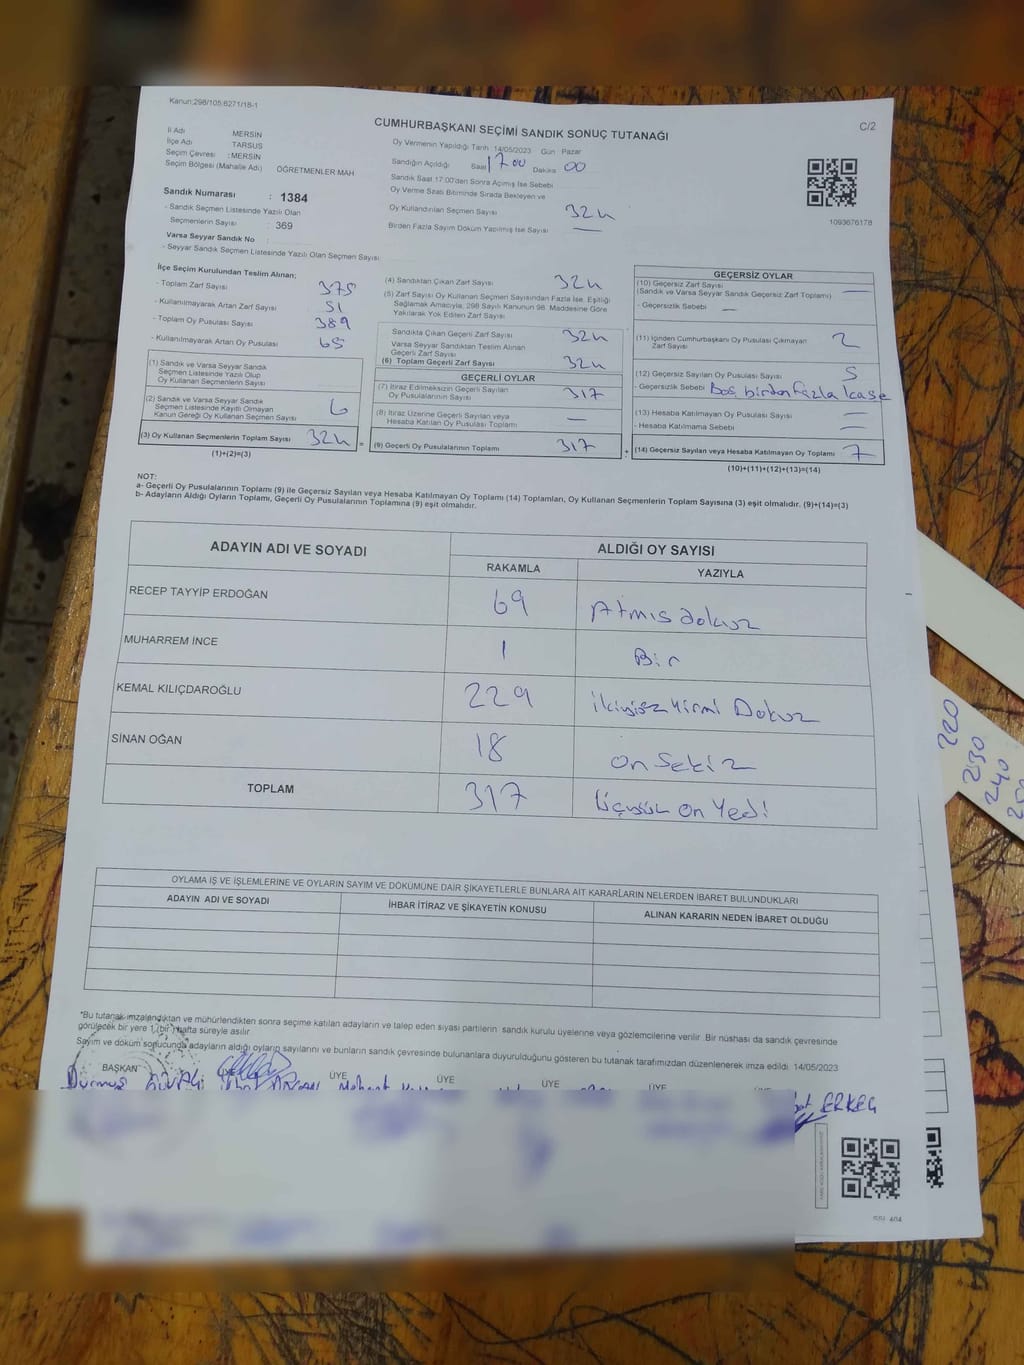 Kanun:298/105;6271/18-1
C/2
CUMHURBAŞKANI SEÇİMİ SANDIK SONUÇ TUTANAĞI
İli Adı MERSİN
İlçe Adı TARSUS
Seçim Çevresi : MERSİN
Seçim Bölgesi (Mahalle Adı) ÖĞRETMENLER MAH
Sandık Numarası : 1384
- Sandık Seçmen Listesinde Yazılı Olan
Seçmenlerin Sayısı : 369
Varsa Seyyar Sandık No :
- Seyyar Sandık Seçmen Listesinde Yazılı Olan Seçmen Sayısı:
Oy Vermenin Yapıldığı Tarih 14/05/2023 Gün Pazar
Sandığın Açıldığı Saat 17 00 Dakika 00
Sandık Saat 17:00'den Sonra Açılmış İse Sebebi
Oy Verme Saati Bitiminde Sırada Bekleyen ve
Oy Kullandırılan Seçmen Sayısı 324
Birden Fazla Sayım Döküm Yapılmış İse Sayısı —
1093676178
İlçe Seçim Kurulundan Teslim Alınan;
- Toplam Zarf Sayısı 375
- Kullanılmayarak Artan Zarf Sayısı 51
- Toplam Oy Pusulası Sayısı 389
- Kullanılmayarak Artan Oy Pusulası 65
(1) Sandık ve Varsa Seyyar Sandık
Seçmen Listesinde Yazılı Olup
Oy Kullanan Seçmenlerin Sayısı
(2) Sandık ve Varsa Seyyar Sandık
Seçmen Listesinde Kayıtlı Olmayan
Kanun Gereği Oy Kullanan Seçmen Sayısı 6
(3) Oy Kullanan Seçmenlerin Toplam Sayısı 324 =
(1)+(2)=(3)
(4) Sandıktan Çıkan Zarf Sayısı 324
(5) Zarf Sayısı Oy Kullanan Seçmen Sayısından Fazla İse, Eşitliği
Sağlamak Amacıyla, 298 Sayılı Kanunun 98. Maddesine Göre
Yakılarak Yok Edilen Zarf Sayısı
Sandıkta Çıkan Geçerli Zarf Sayısı 324
Varsa Seyyar Sandıktan Teslim Alınan
Geçerli Zarf Sayısı
(6) Toplam Geçerli Zarf Sayısı 324
GEÇERLİ OYLAR
(7) İtiraz Edilmeksizin Geçerli Sayılan
Oy Pusulalarının Sayısı 317
(8) İtiraz Üzerine Geçerli Sayılan veya
Hesaba Katılan Oy Pusulası Toplamı —
(9) Geçerli Oy Pusulalarının Toplamı 317 +
GEÇERSİZ OYLAR
(10) Geçersiz Zarf Sayısı
(Sandık ve Varsa Seyyar Sandık Geçersiz Zarf Toplamı) —
- Geçersizlik Sebebi —
(11) İçinden Cumhurbaşkanı Oy Pusulası Çıkmayan
Zarf Sayısı 2
(12) Geçersiz Sayılan Oy Pusulası Sayısı 5
- Geçersizlik Sebebi Boş, birden fazla kaşe
(13) Hesaba Katılmayan Oy Pusulası Sayısı —
- Hesaba Katılmama Sebebi —
(14) Geçersiz Sayılan veya Hesaba Katılmayan Oy Toplamı 7
(10)+(11)+(12)+(13)=(14)
NOT:
a- Geçerli Oy Pusulalarının Toplamı (9) ile Geçersiz Sayılan veya Hesaba Katılmayan Oy Toplamı (14) Toplamları, Oy Kullanan Seçmenlerin Toplam Sayısına (3) eşit olmalıdır. (9)+(14)=(3)
b- Adayların Aldığı Oyların Toplamı, Geçerli Oy Pusulalarının Toplamına (9) eşit olmalıdır.
ADAYIN ADI VE SOYADI ALDIĞI OY SAYISI
RAKAMLA YAZIYLA
RECEP TAYYİP ERDOĞAN 69 Atmış dokuz
MUHARREM İNCE 1 Bir
KEMAL KILIÇDAROĞLU 229 ikiyüz yirmi Dokuz
SİNAN OĞAN 18 on Sekiz
TOPLAM 317 Üçyüz on Yedi
220
230
240
OYLAMA İŞ VE İŞLEMLERİNE VE OYLARIN SAYIM VE DÖKÜMÜNE DAİR ŞİKAYETLERLE BUNLARA AİT KARARLARIN NELERDEN İBARET BULUNDUKLARI
ADAYIN ADI VE SOYADI İHBAR İTİRAZ VE ŞİKAYETİN KONUSU ALINAN KARARIN NEDEN İBARET OLDUĞU
*Bu tutanak imzalandıktan ve mühürlendikten sonra seçime katılan adayların ve talep eden siyasi partilerin sandık kurulu üyelerine veya gözlemcilerine verilir. Bir nüshası da sandık çevresinde
görülecek bir yere 1 (bir) hafta süreyle asılır.
Sayım ve döküm sonucunda adayların aldığı oyların sayılarını ve bunların sandık çevresinde bulunanlara duyurulduğunu gösteren bu tutanak tarafımızdan düzenlenerek imza edildi. 14/05/2023
BAŞKAN ÜYE ÜYE ÜYE ÜYE ÜYE ÜYE
Durmuş
ERKEÇ